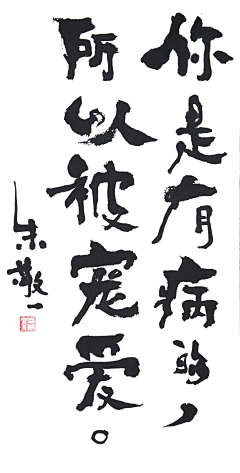 你是有病的，
所以被宠爱。
朱敬一